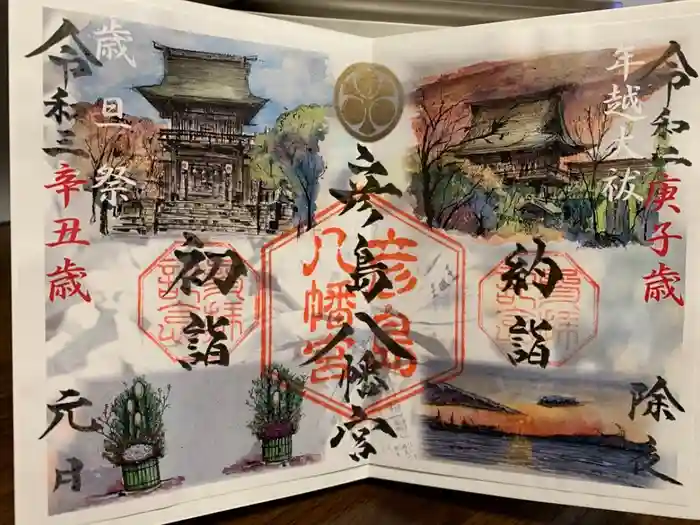 令和二庚子歳
年越大祓
除夜
納詣
奉拝
彦島八幡宮
彦島
八幡宮
初詣
奉拝
歳旦祭
令和三辛丑歳
元日